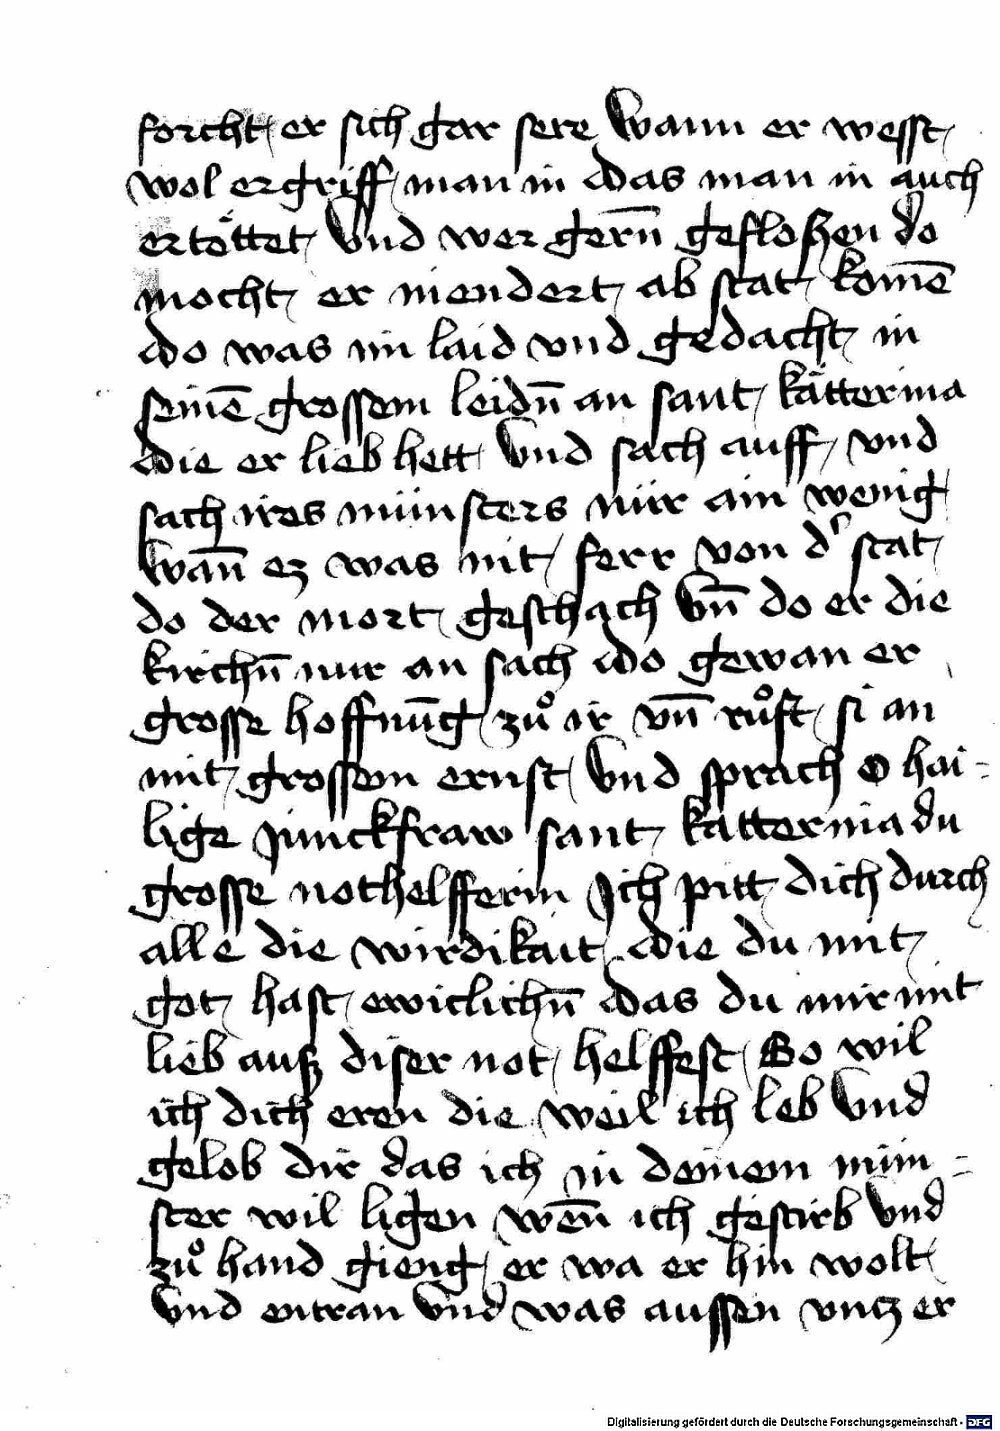 forcht er sich gar sere Wann er wesst
wol ergriff man in das man in auch
ertöttet Vnd wer gern̄ geflohen do
mocht er niendert ab stat komē
do was im laid vnd gedacht in
seinē grossem leidn̄ an sant kätterina
die er lieb hett Vnd sach auff vnd
sach ires münsters nür ain wenig
Wan̄ ez was nit ferr von d' stat
do der mort geschach Vn̄ do er die
kirchn̄ nur an sach do gewan er
grosse hoffnūg zů ir vn̄ růft si an
mit grossem ernst Vnd sprach O hai-
lige junckfraw sant katterina du
grosse nothelfferin Ich pitt dich durch
alle die wirdikait die du mit
got hast ewiclichn̄ das du mir mit
lieb auß diser not helffest So wil
ich dich eren die weil ich leb Vnd
gelob dir das ich in deinem mün-
ster wil ligen wen̄ ich gestirb Vnd
zů hand gieng er wa er hin wolt
Vnd entran Vnd was aussen vntz er
Digitalisierung gefördert durch die Deutsche Forschungsgemeinschaft - DFG